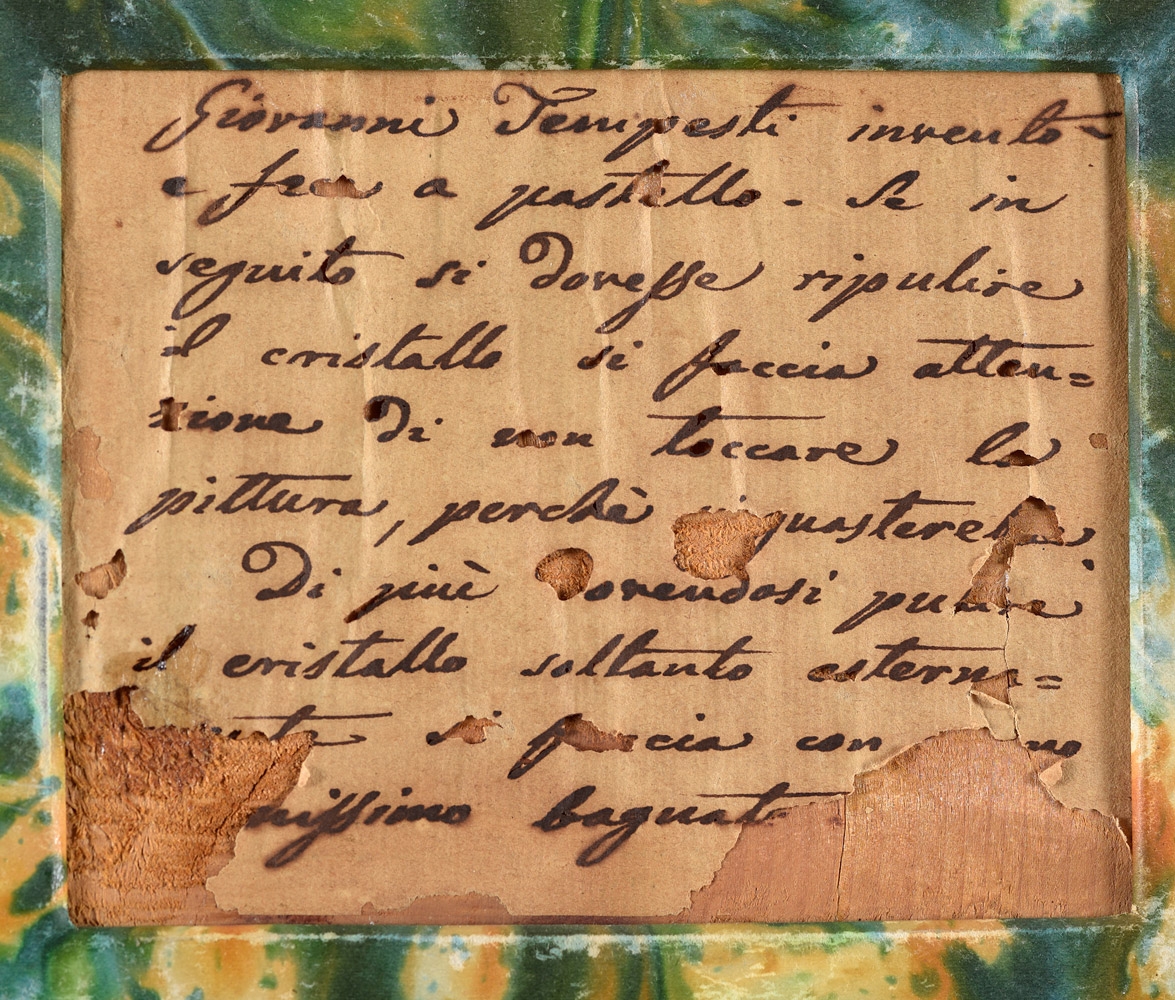 Giovanni Tempesti inventò
e fece a pastello. Se in
seguito si dovesse ripulire
il cristallo si faccia atten=
zione di non toccare la
pittura, perchè si guasterebbe
Di più dovendosi pulire
il cristallo soltanto esterna=
mente si faccia con
nissimo bagnato